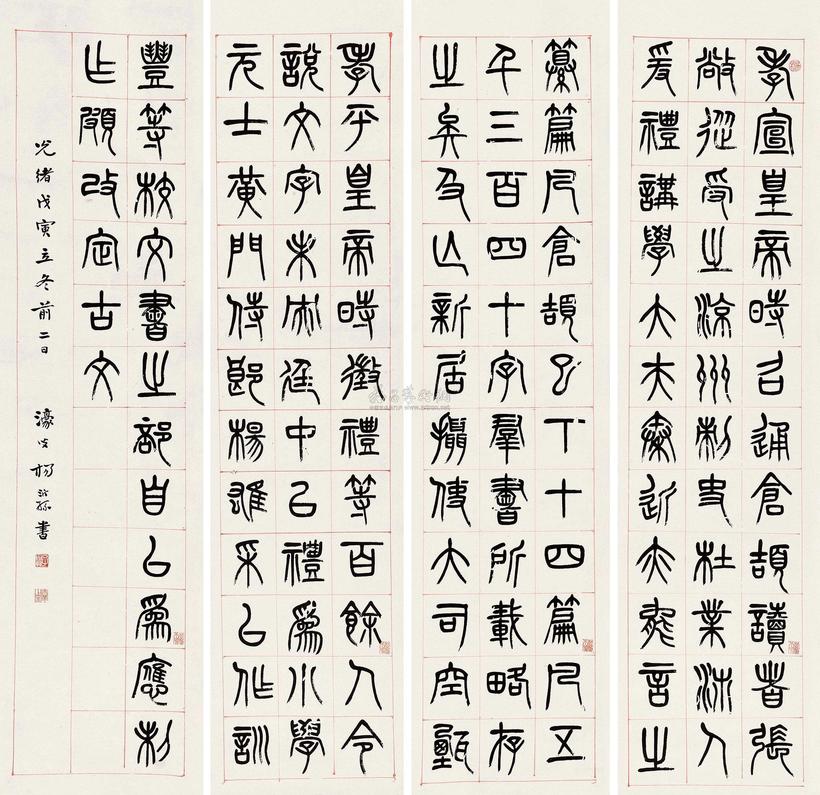 孝宣皇帝時召通倉頡讀者張
敞從受之涼州刺史杜業沛人
爰禮講學大夫秦近亦能言之
纂篇凡倉頡已下十四篇凡五
千三百四十字群書所載略存
之矣及亡新居攝使大司空甄
孝平皇帝時徵禮等百餘人令
說文字未央廷中以禮為小學
元士黃門侍郎楊雄采以作訓
豐等校文書之部自以為應制
作頗改定古文
光緒戊寅立冬前二日 濠叟楊沂孫書